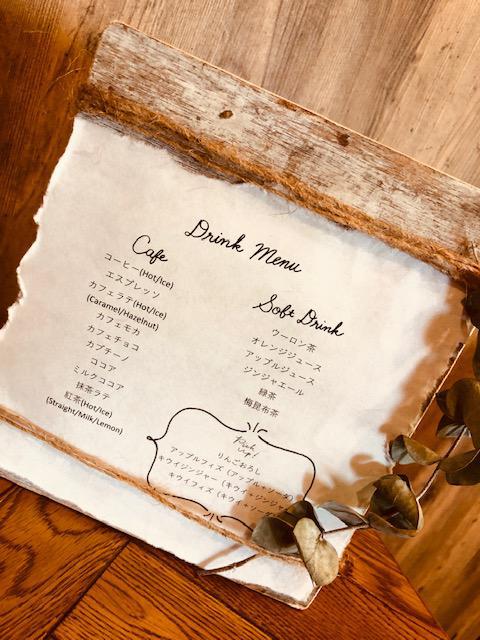 Drink Menu
Cafe
コーヒー(Hot/Ice)
エスプレッソ
カフェラテ(Hot/Ice)
(Caramel/Hazelnut)
カフェモカ
カフェチョコ
カプチーノ
ココア
ミルクココア
抹茶ラテ
紅茶(Hot/Ice)
(Straight/Milk/Lemon)
Soft Drink
ウーロン茶
オレンジジュース
アップルジュース
ジンジャエール
緑茶
梅昆布茶
Pick Up!
りんごおろし
アップルフィズ (アップル+ソーダ)
キウイジンジャー (キウイ+ジンジャ
キウイフィズ (キウイ+ソー